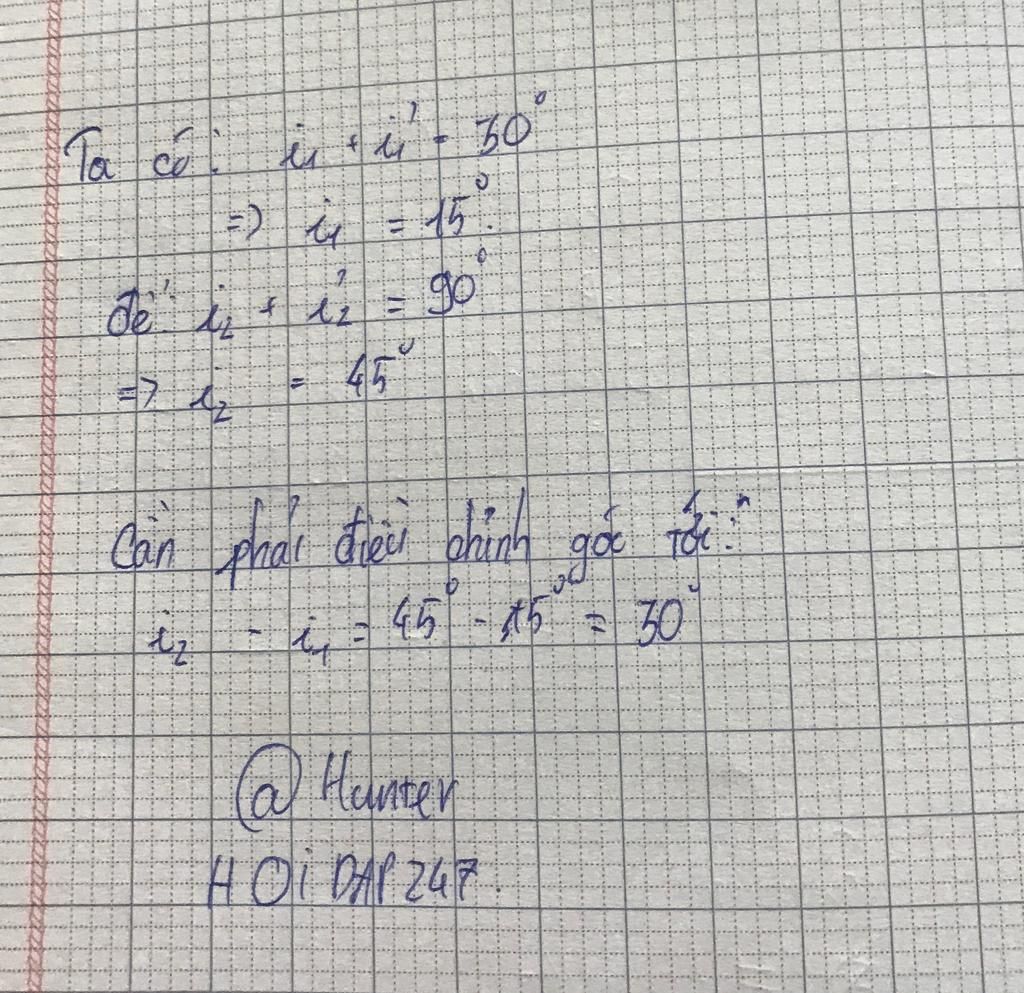 Ta có: i₁ + i₁' = 30°
=> i₁ = 15°.
để i₂ + i₂' = 90°
=> i₂ = 45°
Cần phải điều chỉnh góc tới:
i₂ - i₁ = 45° - 15° = 30°
@ Hunter
HOiDAP247.